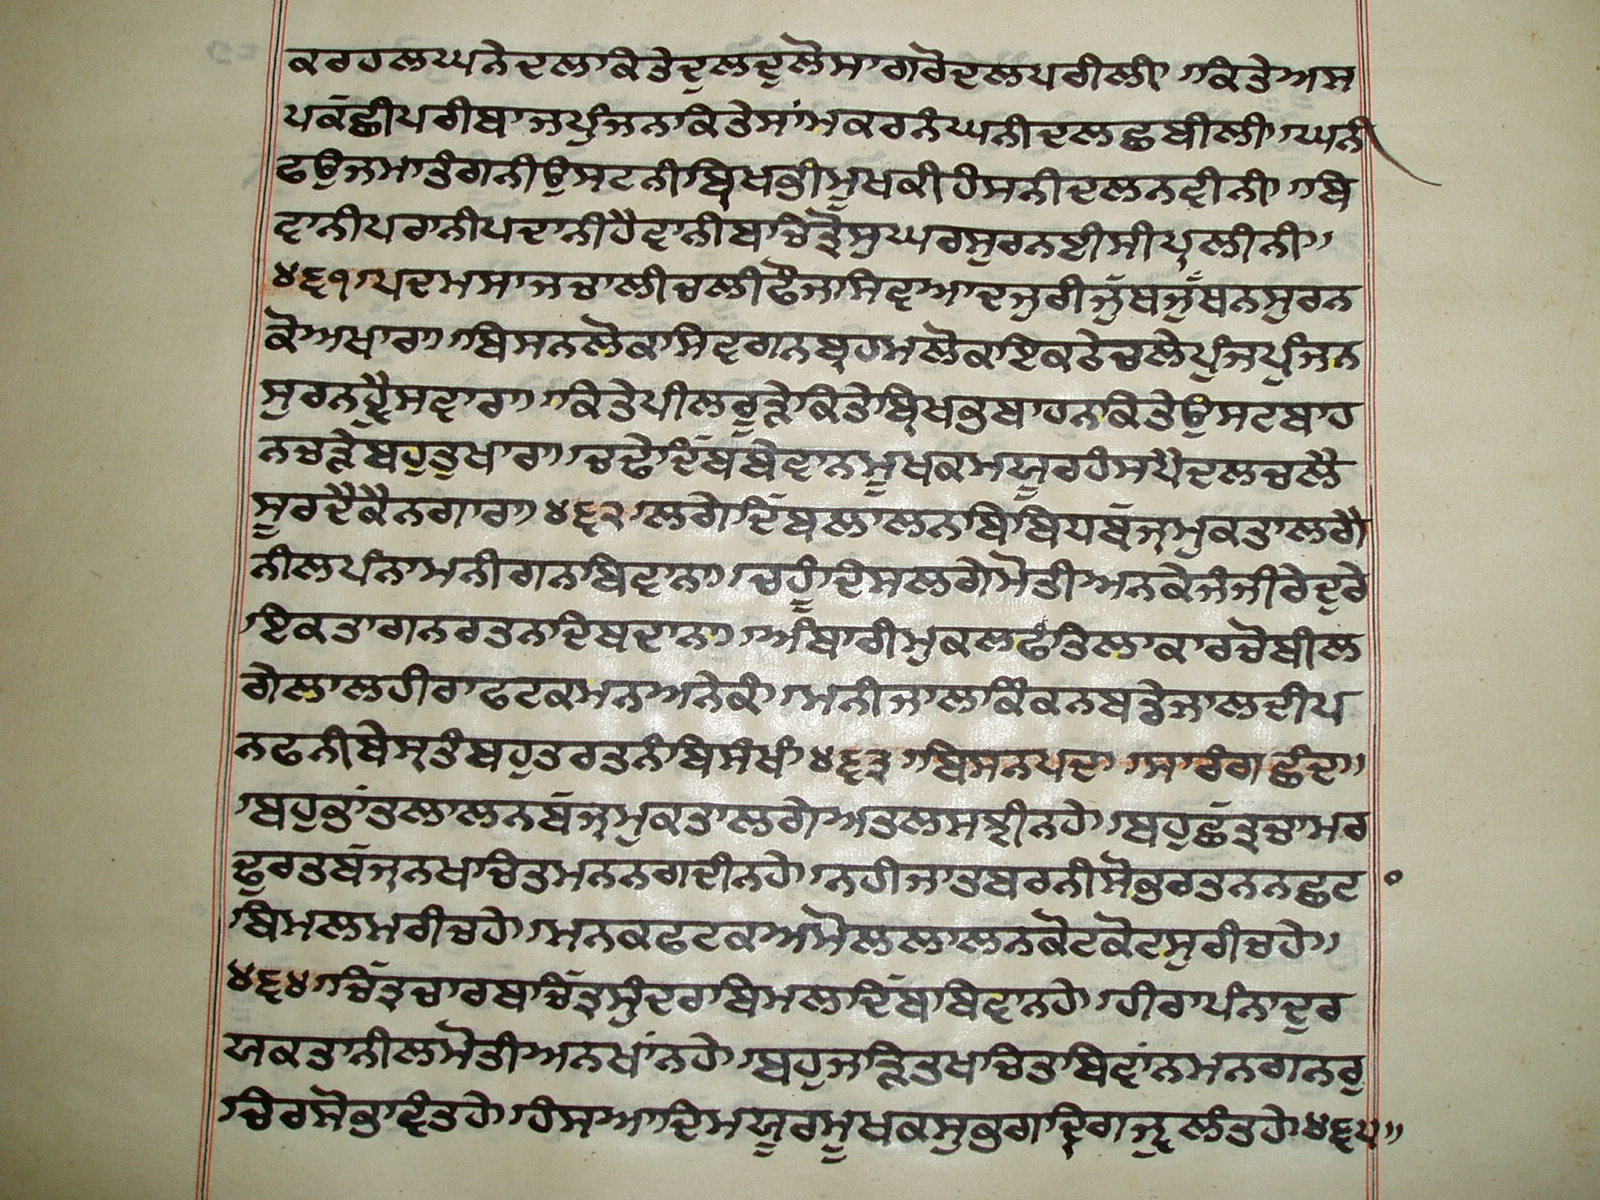 ਕਰਹਲਘਨੇਦਲਾਕਿਤੇਦੁਲਦੁਲੋਸਾਗਰੋਦਲਪਰੀਲੀ।ਕਿਤੇਅਸ
ਪਕੱਛੀਪਰੀਬਾਜਪੁੰਜਨਕਿਤੇਸਾਂਮਕਰਨੰਘਨੀਦਲਛਬੀਲੀ।ਘਨੀ
ਫਉਜਮਾਤੰਗਨੀਉਸਟਨੀਬ੍ਰਿਖਭੀਮੂਖਕੀਹੰਸਨੀਦਲਨਵੀਨੀ।ਬਿ
ਵਾਨੀਪਰਾਨੀਪਦਾਨੀਹੈਵਾਨੀਬਚਿਤ੍ਰੋਸੁਘਰਸੁਰਨਈਸੀਪੁਲੀਨੀ॥
੪੬੧।ਪਦਮਸਾਜਚਾਲੀਚਲੀਫੌਜਸਿਵਾਆਦਜੁਰੀਜੁੱਬਜੁੱਬਨਸੁਰਨ
ਕੋਅਖਾਰਾ।ਬਿਸਨਲੋਕਸਿਵਗਨਬ੍ਰਹਮਲੋਕਇਕਠੇਚਲੇਪੁੰਜਪੁੰਜਨ
ਸੁਰਨਹ੍ਵੈਸਵਾਰਾ।ਕਿਤੇਪੀਲਰੂੜੇਕਿਤੇਬ੍ਰਿਖਭਬਾਹਨਕਿਤੇਉਸਟਬਾਹ
ਨਚੜੇਬਹੁਤੁਖਾਰਾ।ਚਢੇਦਿੱਬਬੇਵਾਨਮੂਖਕਮਯੂਰਹੰਸਪੈਦਲਚਲੈ
ਸੂਰਦੈਕੈਨਗਾਰਾ।੪੬੨।ਲਗੇਦਿੱਬਲਾਲਨਬਿਬਿਧਬੱਜ੍ਰਮੁਕਤਾਲਗੈ
ਨੀਲਪੰਨਾਮਨੀਗਨਬਿਵਾਨਾ।ਚਹੂੰਦਿਸਲਗੇਮੋਤੀਅਨਕੇਜੰਜੀਰੇਦੁਰੇ
ਇਕਤਾਗਨਰਤਨਦਿਬਦਾਨਾ।ਅੰਬਾਰੀਮੁਕਲਫੰਤਿਲਾਕਾਰਚੋਬੀਲ
ਗੇਲਾਲਹੀਰਾਫਟਕਮਨਅਨੇਕੰ।ਮਨੀਜਾਲਕਿੰਕਨਬਤ੍ਰੇਜਾਲਦੀਪ
ਨਫਨੀਬੇਸ੍ਤੰਬਹੁਤਰਤਨੰਬਿਸੰਖੰ੪੬੩।ਬਿਸਨਪਦਾ।ਸਾਰੰਗਛੰਦਾ।
ਬਹੁਭਾਂਤਲਾਲਨਬੱਜ੍ਰਮੁਕਤਾਲਗੇਅਤੁਲਸਵੀਨਹੇ।ਬਹੁਛੱਤ੍ਰਚਾਮਰ
ਢੁਰਤਬੱਜ੍ਰਨਖਚਿਤਮਨਨਗਦੀਨਹੇ।ਨਹੀਜਾਤਬਰਨੀਸੋਭਰਤਨਨਛਟ
ਬਿਮਲਮਰੀਚਹੇ।ਮਨਕਫਟਕਅਮੋਲਲਾਲਨਕੋਟਕੋਟਸੁਰੀਚਹੇ॥
੪੬੪।ਚਿੱਤ੍ਰਚਾਰਬਚਿੱਤ੍ਰਸੁੰਦਰਬਿਮਲਦਿੱਬਬਿਵਾਨਹੇ।ਹੀਰਾਪੰਨਾਦੁਰ
ਯਕਤਾਨੀਲਮੋਤੀਅਨਖਾਂਨਹੇ।ਬਹੁਜੜਿਤਖਚਿਤਬਿਵਾਂਨਮਨਗਨਰੁ
ਚਿਰਸੋਭਾਵੰਤਹੇ।ਹੰਸਆਦਿਮਯੂਰਮੂਖਕਸੁਭਗਦ੍ਰਿਗਜੁਲੰਤਹੇ੪੬੫॥